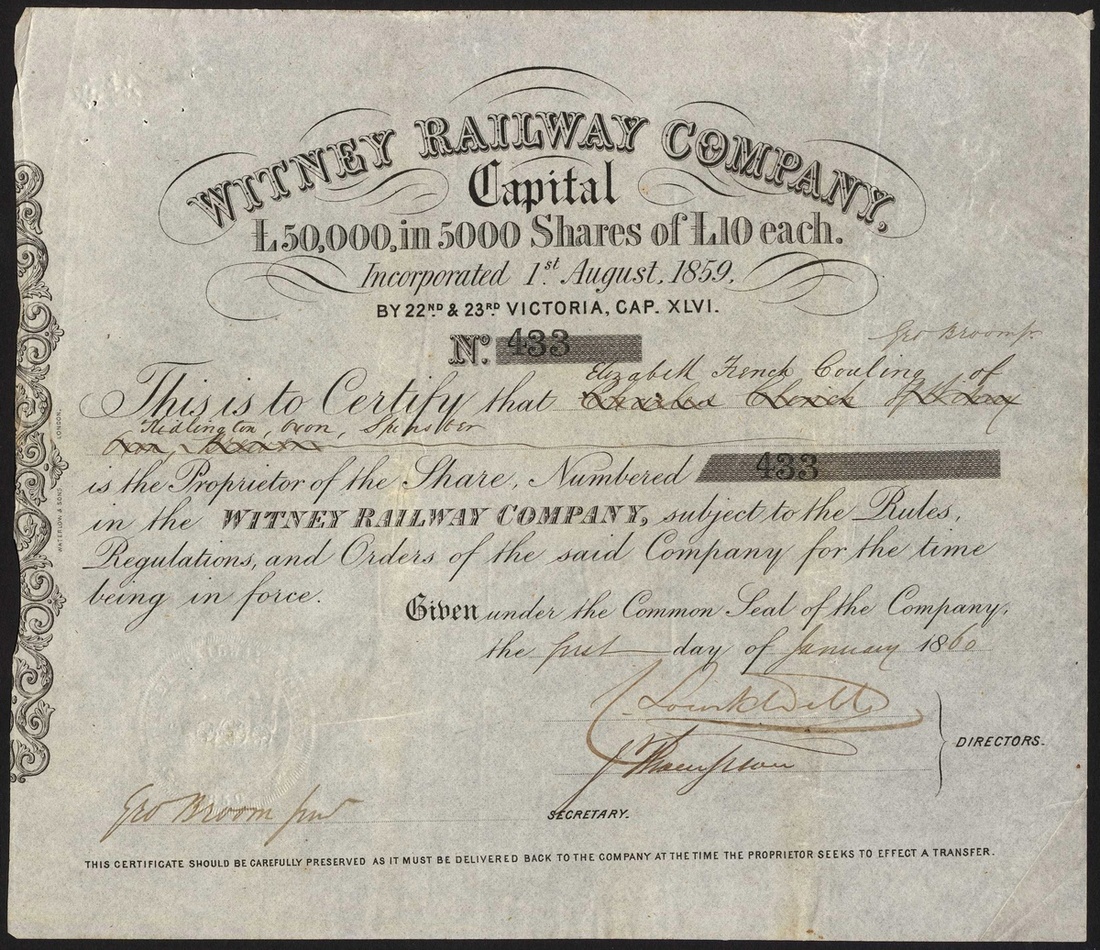 WITNEY RAILWAY COMPANY,
Capital
£50,000, in 5000 Shares of £10 each.
Incorporated 1st August, 1859,
BY 22ND & 23RD VICTORIA, CAP. XLVI.
No. 433
Geo Broom jr.
Elizabeth French Couling of
This is to Certify that Charles
Kidlington, Oxon, Spinster
is the Proprietor of the Share, Numbered 433
in the WITNEY RAILWAY COMPANY, subject to the Rules,
Regulations, and Orders of the said Company for the time
being in force.
Given under the Common Seal of the Company,
the first day of January 1860
J Thompson
DIRECTORS.
Geo Broom junr
SECRETARY.
THIS CERTIFICATE SHOULD BE CAREFULLY PRESERVED AS IT MUST BE DELIVERED BACK TO THE COMPANY AT THE TIME THE PROPRIETOR SEEKS TO EFFECT A TRANSFER.
WATERLOW & SONS LONDON.